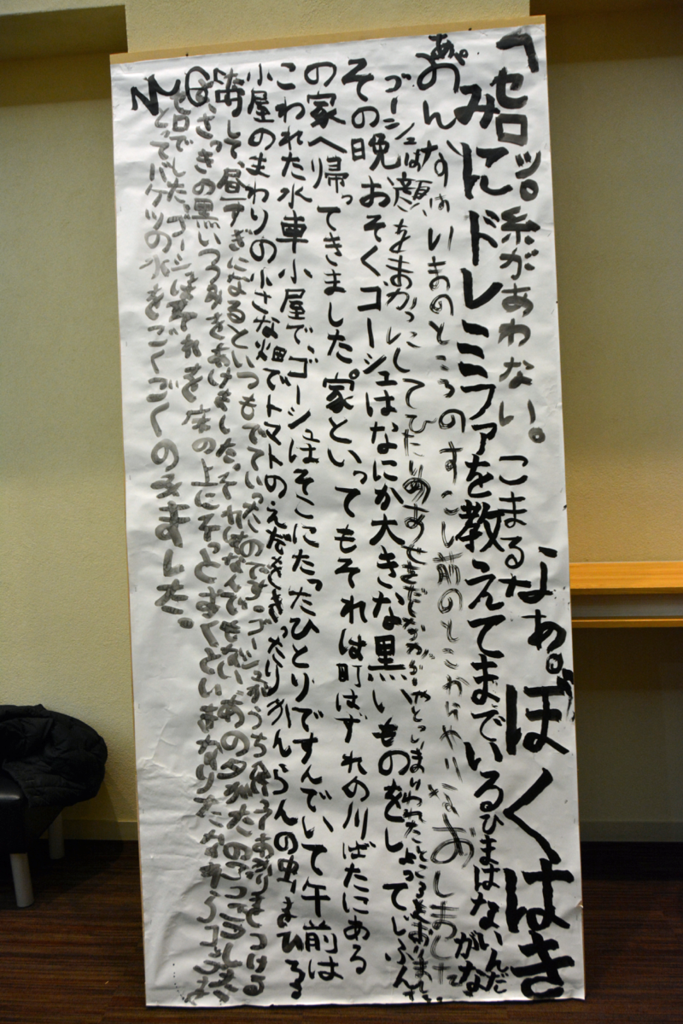 「セロッ。糸があわない。こまるなぁ。ぼくはき
みにドレミファを教えてまでいるひまはないんだがな
あ。
おんなはいまのところのすこし前のところからやりなおしました
ゴーシュは顔をまっかにしてひたいにあせをだしながらやっといまいわれたところをとおりました
その晩おそくゴーシュはなにか大きな黒いものをしょってじぶん
の家へ帰ってきました。家といってもそれは町はずれの川ばたにある
こわれた水車小屋で、ゴーシュはそこにたったひとりですんでいて午前は
小屋のまわりの小さな畑でトマトのえだをきったりかんらんの虫をひろ
して、昼すぎになるといつもでていったのです。ゴーシュがうちへ入ってあかりをつける
とさっきの黒いつつみをあけました。それはなんでもないあの夕がたのごつごつした
ロでした。ゴーシュはそれを床の上にそっとおくといきなりたなからコップを
とってバケツの水をごくごくのみました。
NG